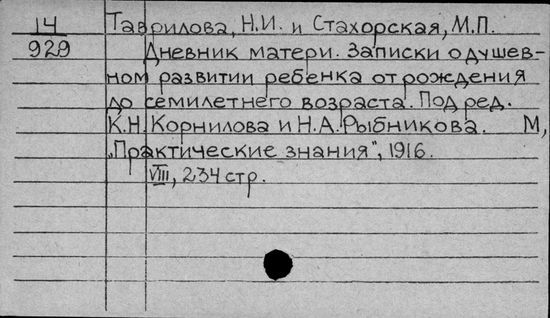 14 Гаврилова, Н.И. и Стахорская, М.П.
929 Дневник матери. Записки о душев-
ном развитии ребенка от рождения
до семилетнего возраста. Под ред.
К.Н. Корнилова и Н.А. Рыбникова. М,
"Практические знания", 1916.
VIII, 234 стр.